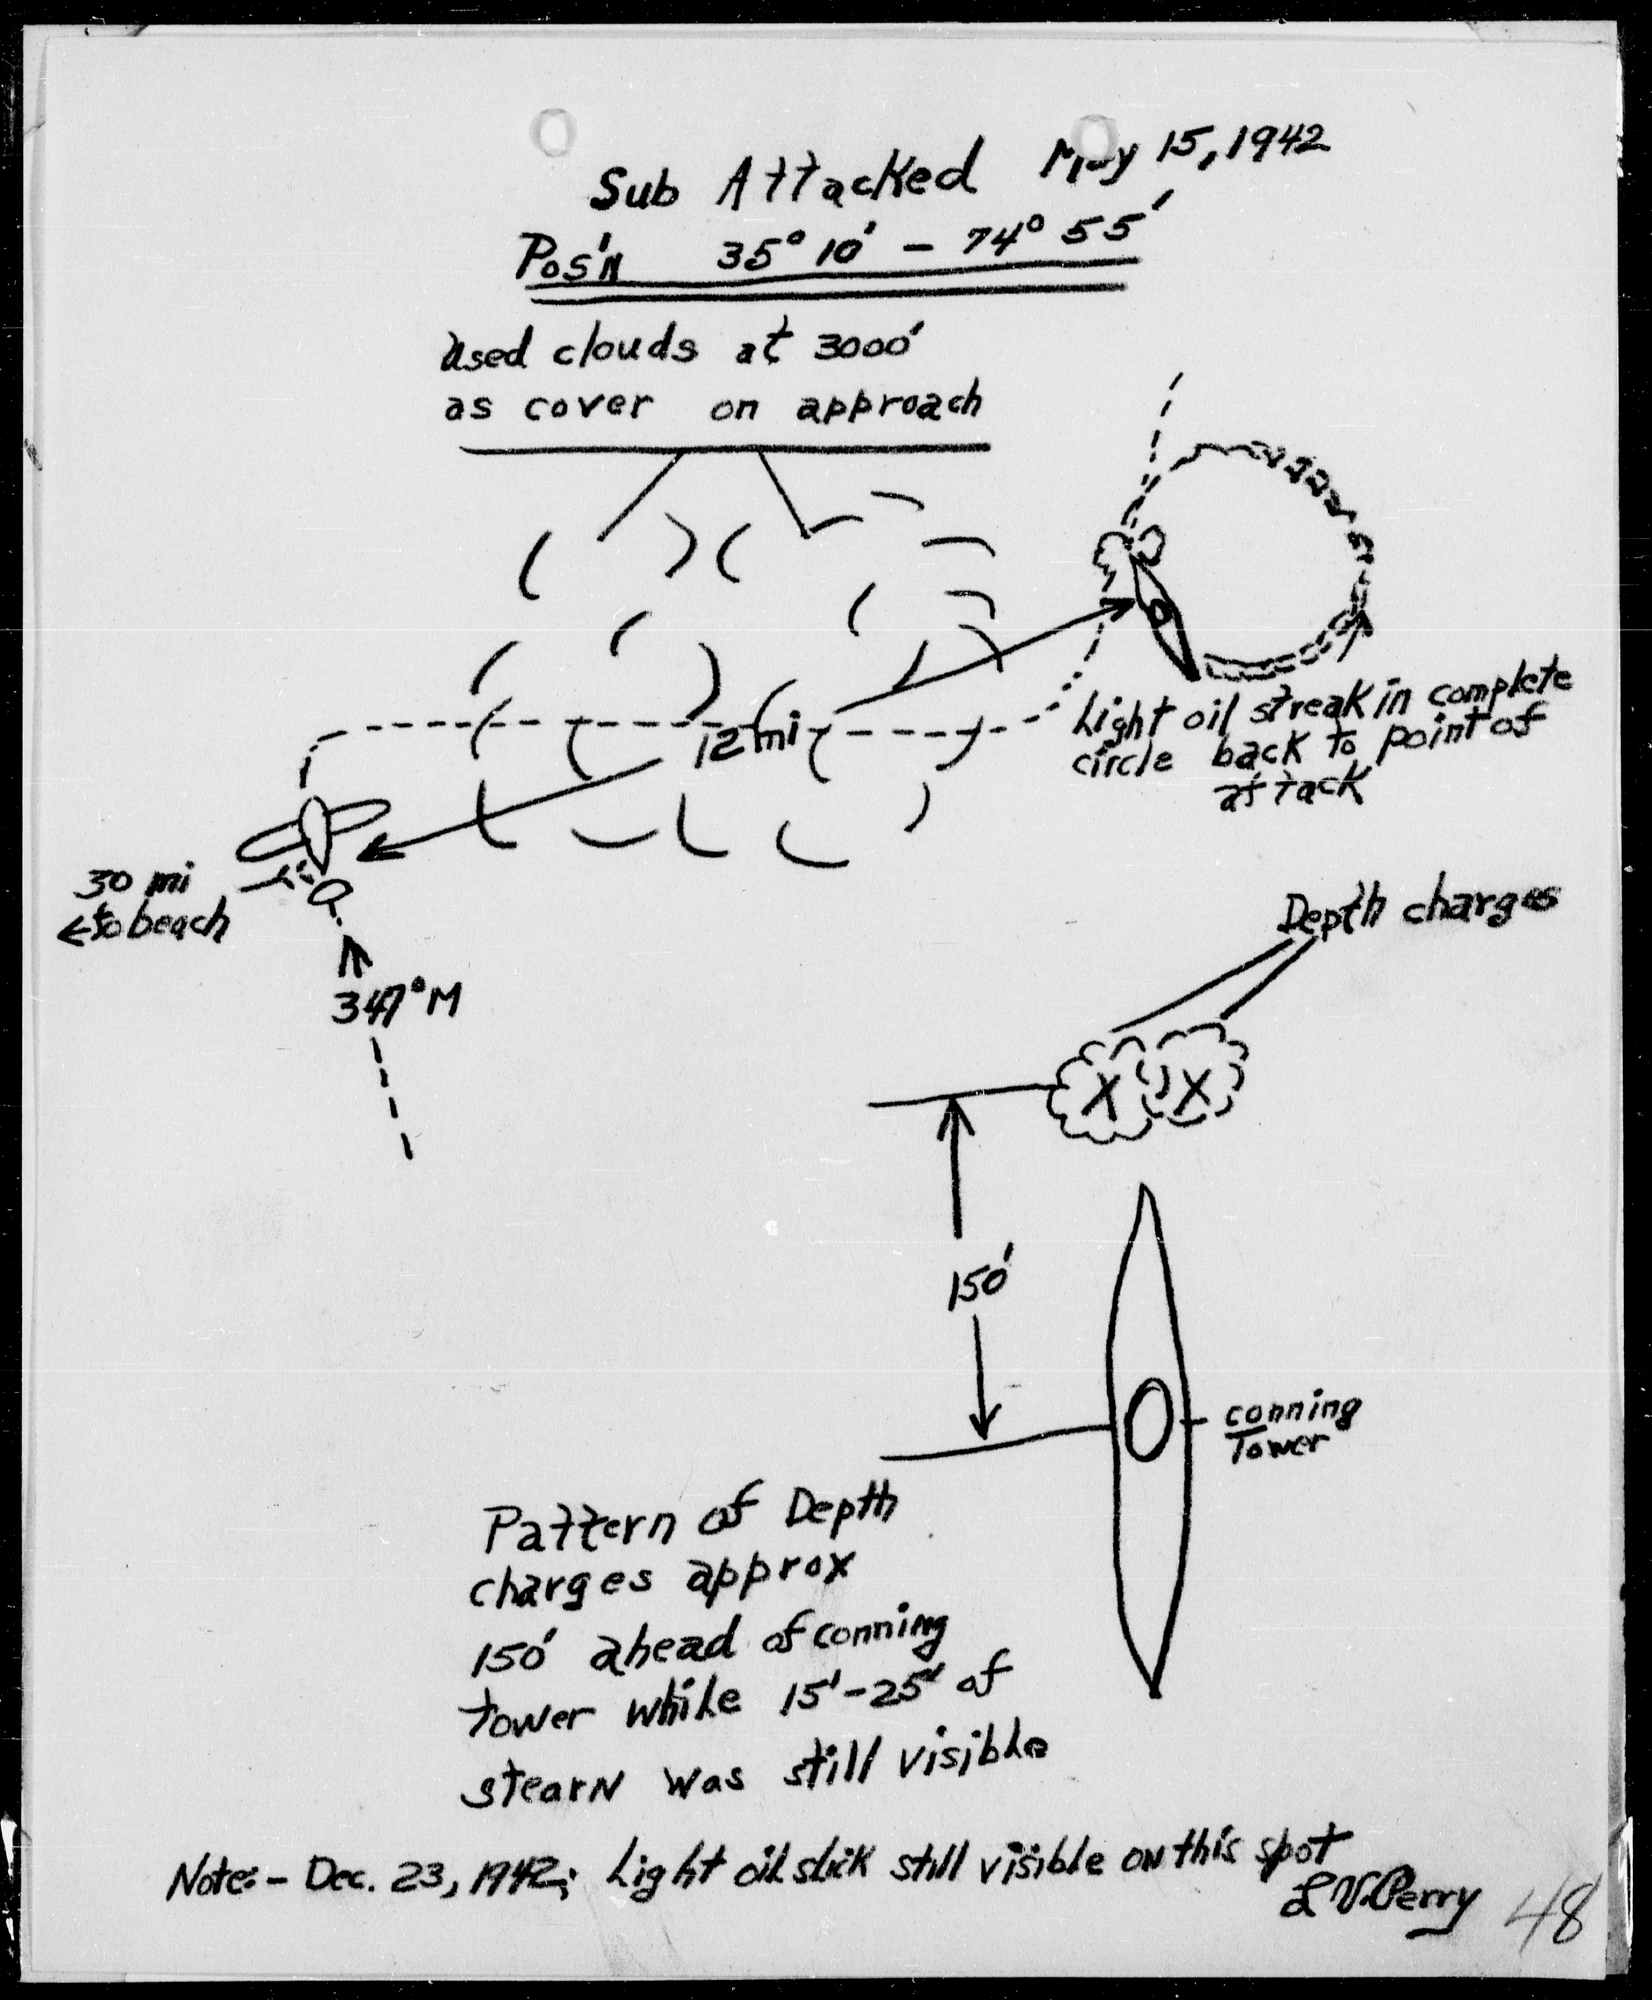 Sub Attacked May 15, 1942
Pos'n 35° 10' - 74° 55'
Used clouds at 3000'
as cover on approach
12 mi
Light oil streak in complete
circle back to point of
attack
30 mi
← to beach
347° M
Depth charges
X X
150'
conning
Tower
Pattern of Depth
charges approx
150' ahead of conning
tower while 15'-25' of
stearN was still visible
Note:- Dec. 23, 1942; Light oil slick still visible oN this spot
L V. Perry
48